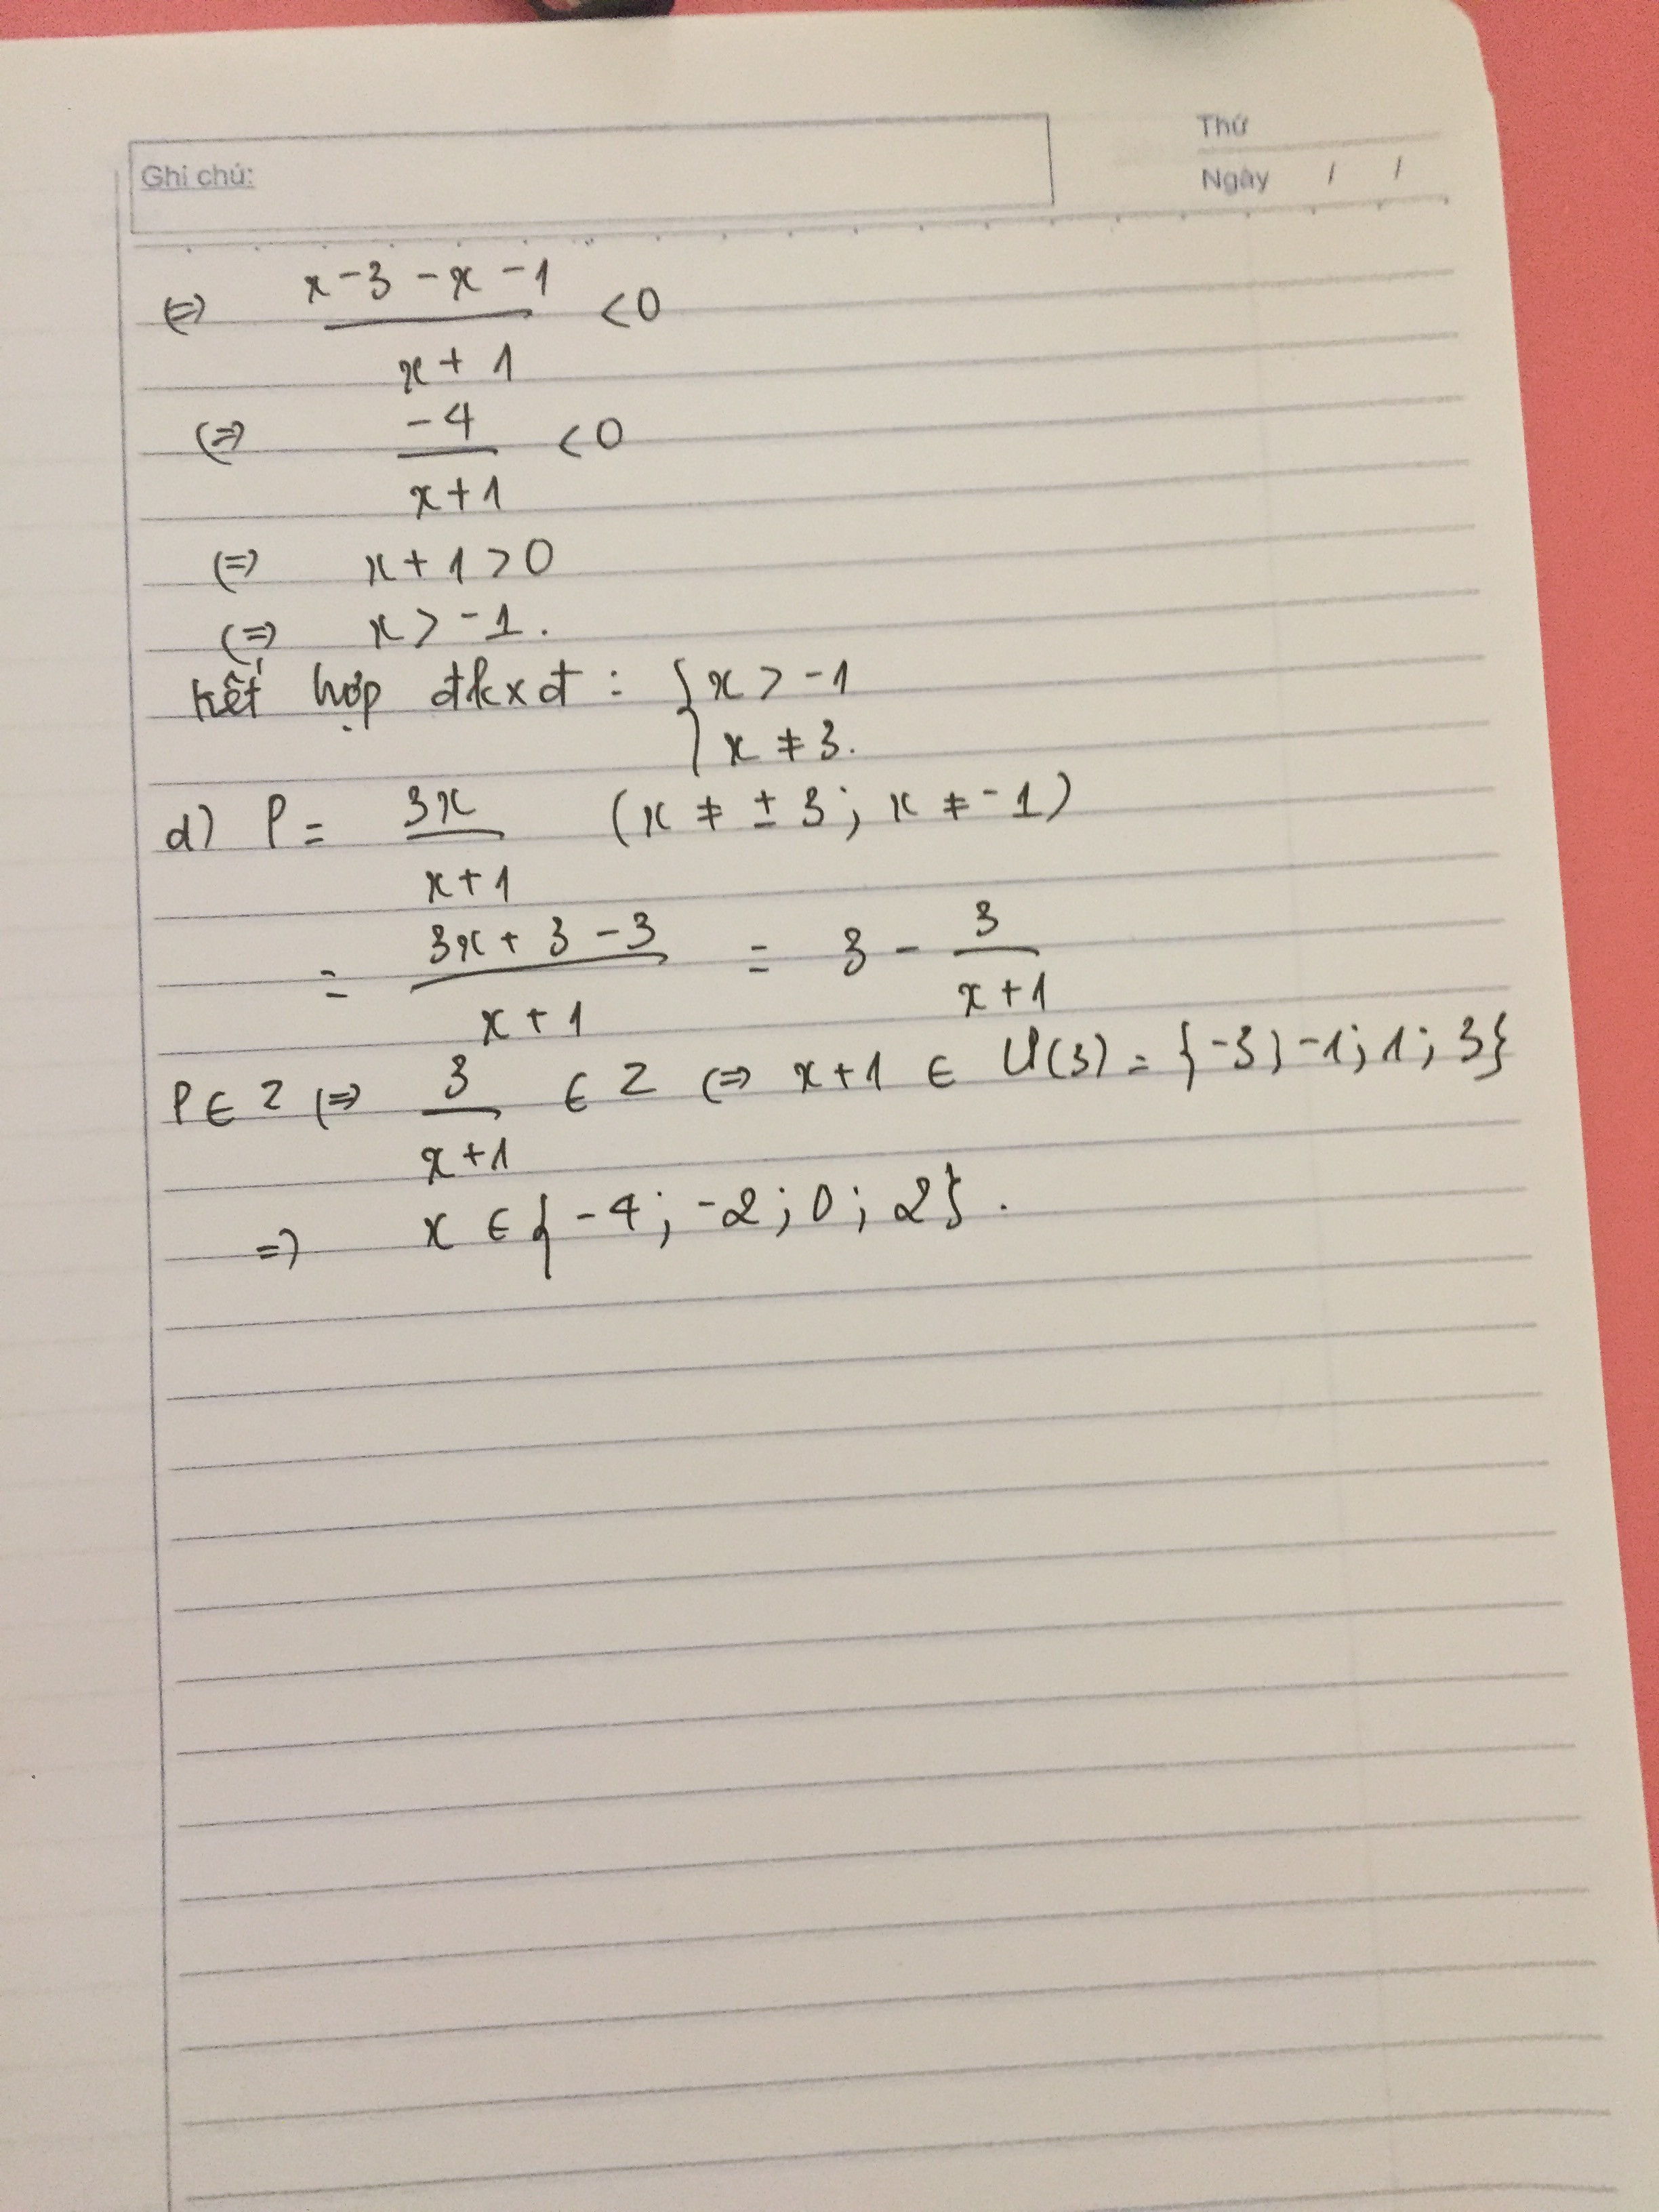 Thứ
Ghi chú:
Ngày / /
(=) x-3-x-1 / x+1 <0
(=) -4 / x+1 <0
(=) x+1>0
(=) x>-1.
Kết hợp đkxđ: { x>-1
x≠3.
d) P= 3x / x+1 (x≠±3; x≠-1)
= 3x+3-3 / x+1 = 3 - 3 / x+1
P∈Z (=) 3 / x+1 ∈ Z (=) x+1 ∈ Ư(3) = {-3; -1; 1; 3}
=) x ∈ {-4; -2; 0; 2}.